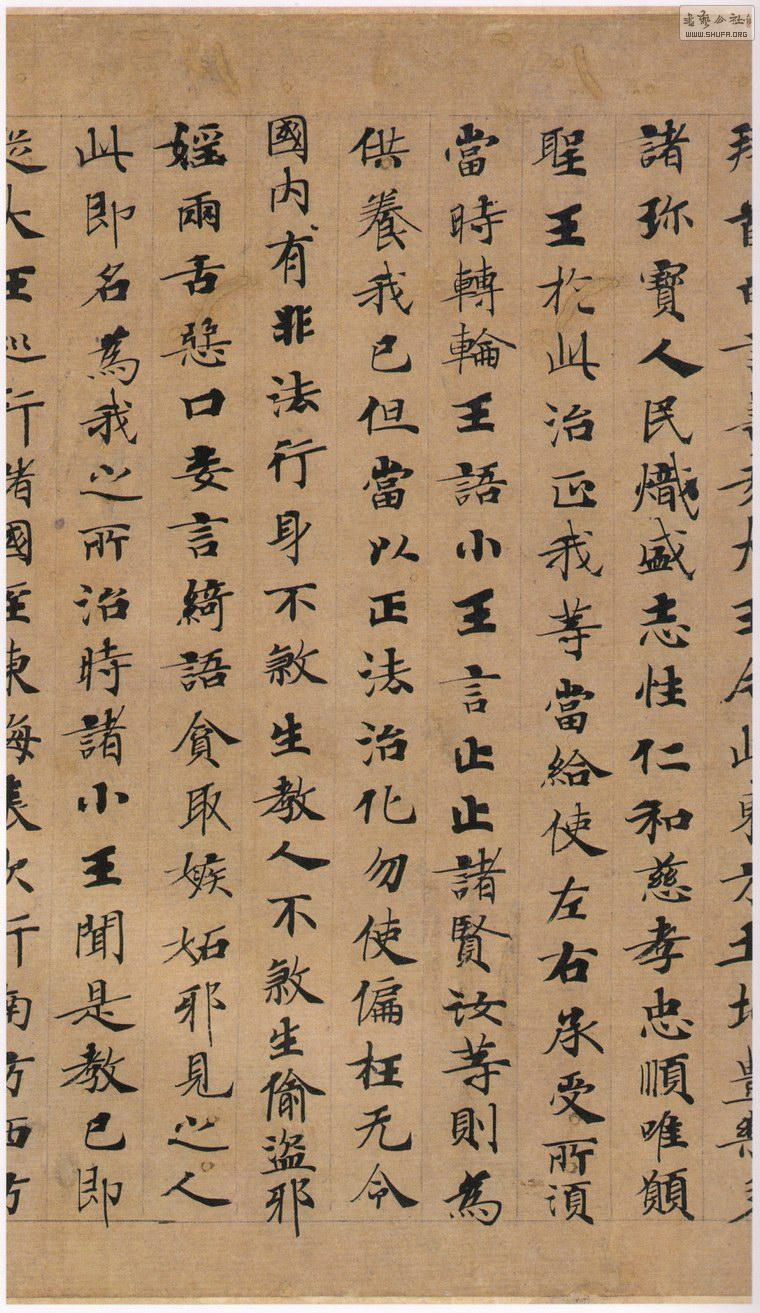 書艺公社
WWW.SHUFA.ORG
大王今此東方土地豊樂多
諸珎寶人民熾盛志性仁和慈孝忠順唯願
聖王於此治正我等當給使左右承受所須
當時轉輪王語小王言止止諸賢汝等則為
供養我已但當以正法治化勿使偏枉无令
國內有非法行身不煞生教人不煞生偷盜邪
婬兩舌惡口妄言綺語貪取嫉妬邪見之人
此即名為我之所治時諸小王聞是教已即
從大王巡行諸國至東海表次行南方西方